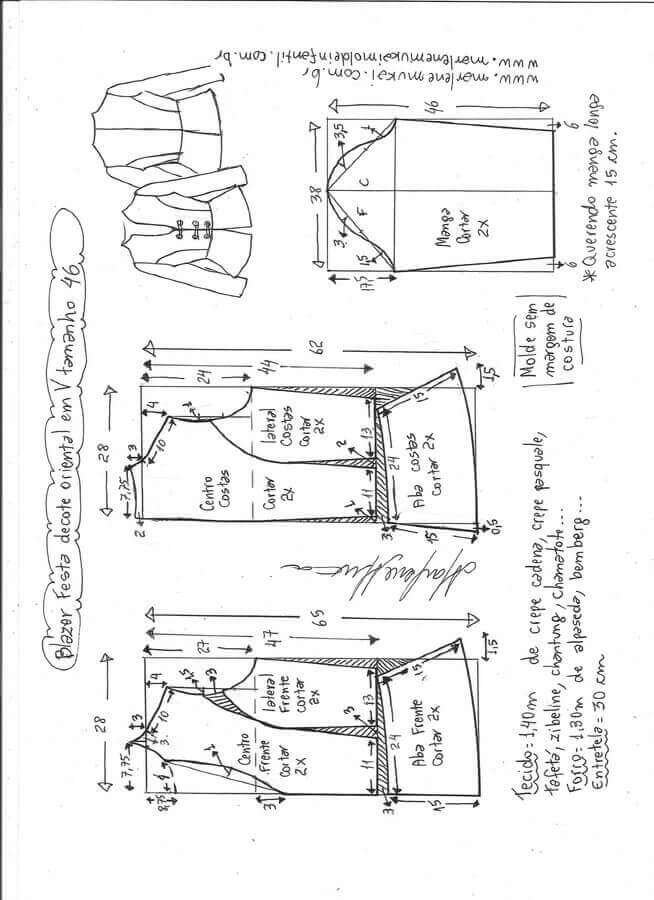 Blazer Festa decote oriental em V tamanho 46
www.marlenemukai.com.br
www.marlenemukaimoldeinfantil.com.br
46
38
17,5
3,5
1
3
1,5
C
F
Manga
Cortar
2X
6
6
* Querendo manga longa
acrescente 15 cm.
Molde sem
margem de
costura
62
44
24
28
4
3
10
7,75
2
1
Centro
Costas
Cortar
2X
lateral
Costas
Cortar
2X
2
13
11
1
24
15
3
15
1,5
0,5
Aba costas
Cortar 2X
65
47
27
28
4
3
10
7,75
3
1,5
3
1
3
Centro
Frente
cortar
2X
lateral
Frente
cortar
2X
3
13
11
24
15
3
15
1,5
Aba Frente
Cortar 2X
Tecido = 1,40m de crepe cadena, crepe pasquale,
tafetá, zibeline, chantung, chamatote...
Forro = 1,30m de alpaseda, bemberg...
Entretela = 30 cm